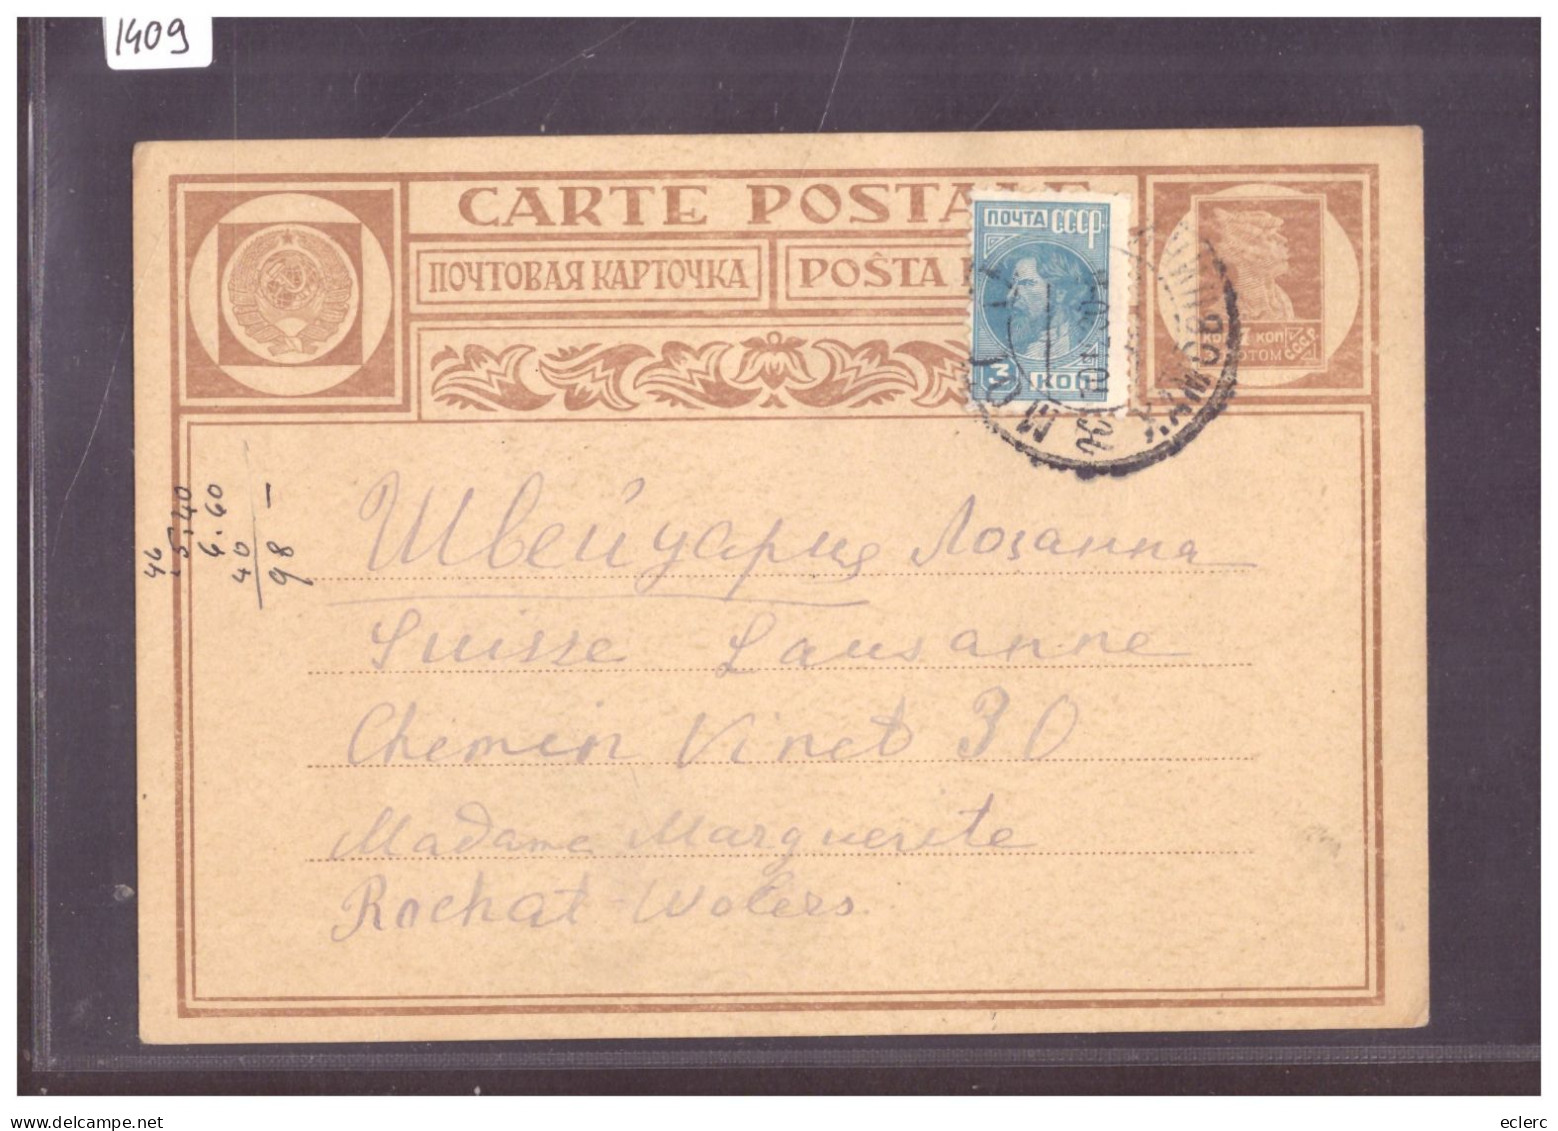 1409
CARTE POSTALE
ПОЧТОВАЯ КАРТОЧКА POŜTA
ПОЧТА СССР
3 КОП
7 КОП
СССР
46
5.40
6.60
40
98 -
Швейцария Лозанна
Suisse Lausanne
Chemin Vinet 30
Madame Marguerite
Rochat-Wolers
www.delcampe.net
eclerc